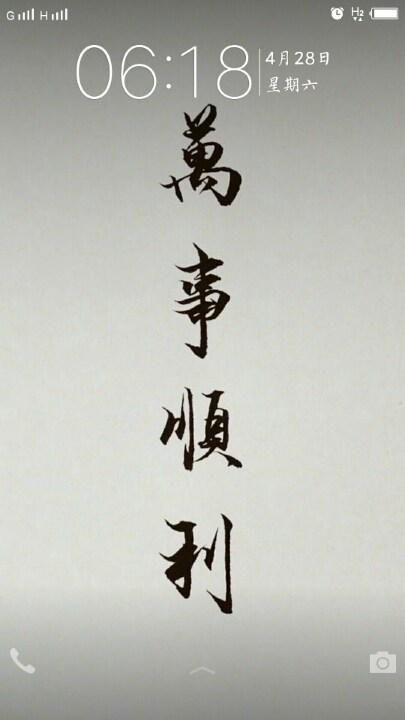 G H H2
06:18 4月28日
星期六
萬
事
順
利